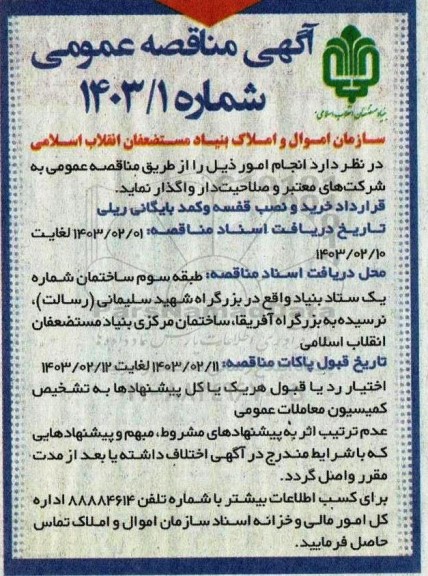 آگهی مناقصه عمومی
شماره ۱۴۰۳/۱
بنیاد مستضعفان انقلاب اسلامی
سازمان اموال و املاک بنیاد مستضعفان انقلاب اسلامی
در نظر دارد انجام امور ذیل را از طریق مناقصه عمومی به
شرکت‌های معتبر و صلاحیت‌دار واگذار نماید.
قرارداد خرید و نصب قفسه وکمد بایگانی ریلی
تاریخ دریافت اسناد مناقصه: ۱۴۰۳/۰۲/۰۱ لغایت
۱۴۰۳/۰۲/۱۰
محل دریافت اسناد مناقصه: طبقه سوم ساختمان شماره
یک ستاد بنیاد واقع در بزرگراه شهید سلیمانی (رسالت)،
نرسیده به بزرگراه آفریقا، ساختمان مرکزی بنیاد مستضعفان
انقلاب اسلامی
تاریخ قبول پاکات مناقصه: ۱۴۰۳/۰۲/۱۱ لغایت ۱۴۰۳/۰۲/۱۲
اختیار رد یا قبول هریک یا کل پیشنهادها به تشخیص
کمیسیون معاملات عمومی
عدم ترتیب اثر به پیشنهادهای مشروط، مبهم و پیشنهادهایی
که با شرایط مندرج در آگهی اختلاف داشته یا بعد از مدت
مقرر واصل گردد.
برای کسب اطلاعات بیشتر با شماره تلفن ۸۸۸۸۴۶۱۴ اداره
کل امور مالی و خزانه اسناد سازمان اموال و املاک تماس
حاصل فرمایید.